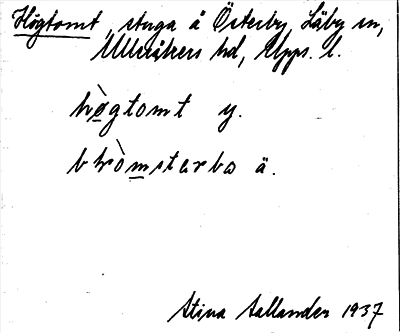 Högtomt, stuga å Österby, Läby sn,
Ulleråkers hd, Upps. l.
hò̲gtomt y.
bhròm̲starba ä.
Stina Sallander 1937